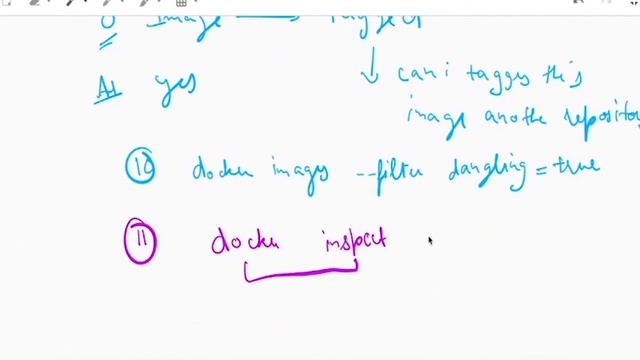 Image Tagged
Ans yes
can i tagges this
image anothe repository
10 docker images --filter dangling = true
11 docker inspect